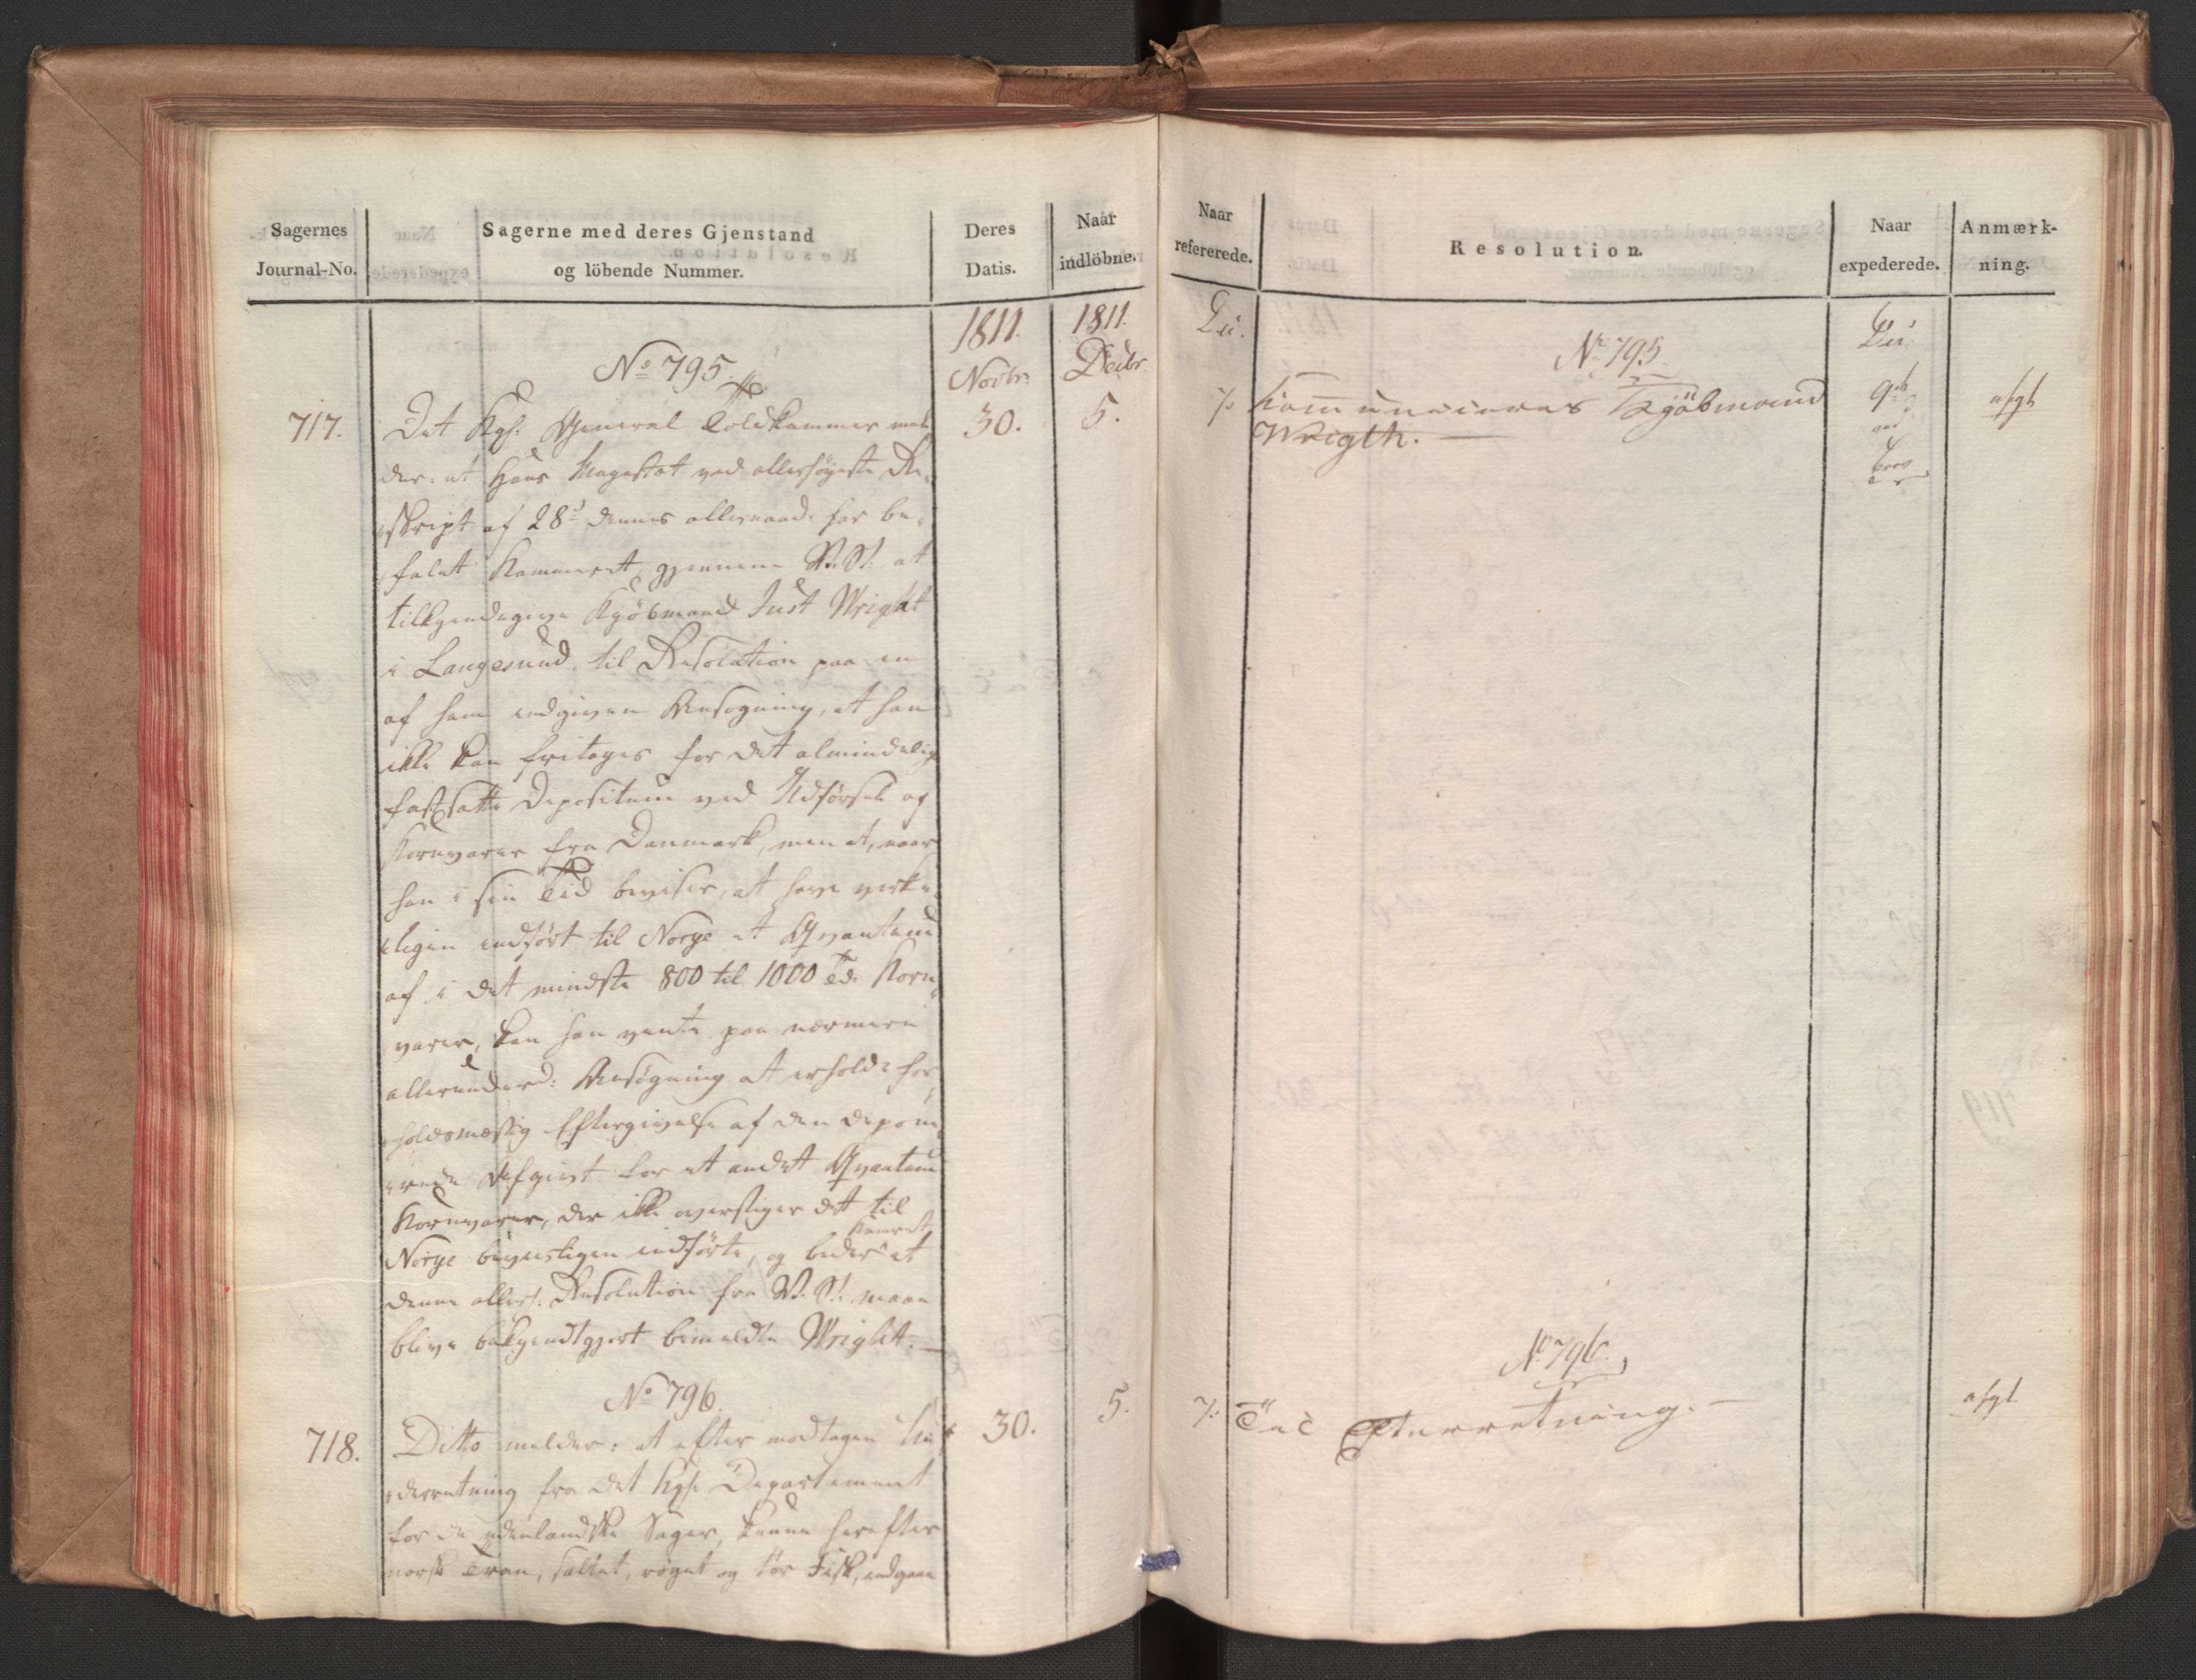 Sagernes
Journal-No.
Sagerne med deres Gjenstand
og löbende Nummer.
Deres
Datis.
Naar
indlöbne.
1811.
Novbr.
1811.
Decbr.
No 795.
717.
30.
5.
Det Kgl. General Toldkammer mel-
der: at Hans Magestæt ved allerhöyeste Re-
skript af 28d dennes allernaad. har be-
falet Kammeret, gjennem R. K. at
tilkjendegive Kjöbmand Just Wright
i Langesund, til Resolution paa en
af ham indgiven Ansögning, at han
ikke kan fritages for det almindelig
fastsatte Depositum ved Udförsel af
Kornvarer fra Danmark, men at, naar
han i sin Tid beviser, at have virke-
ligen indfört til Norge et Qvantum
af i det mindste 800 til 1000 Td. Korn-
varer, kan han vente paa nærmere
allerunderd: Ansögning at erholde for-
holdsmæssig Eftergivelse af den depone-
rede Afgivt for et andet Qvantum
Kornvarer, der ikke overstiger det til
Norge beviisligen indförte, og beder Kamret at
denne allerh: Resolution fra R. K. maae
blive bekjendtgjort bemeldte Wright.
No 796.
718.
30.
5.
Ditto melder: at efter modtagen Un-
derretning fra det Kgl. Departement
for de udenlandske Sager, kunne herefter
norsk Tran, saltet, röget og tör Fisk, indgaae
Naar
refererede.
Resolution.
Naar
expederede.
Anmærk-
ning.
Du.
No 795
Du.
7.
Kommuniceres Kjöbmand
Wrigth.
9d
ved
Brev
afgl
No 796.
7.
Til Efterretning.
afgl